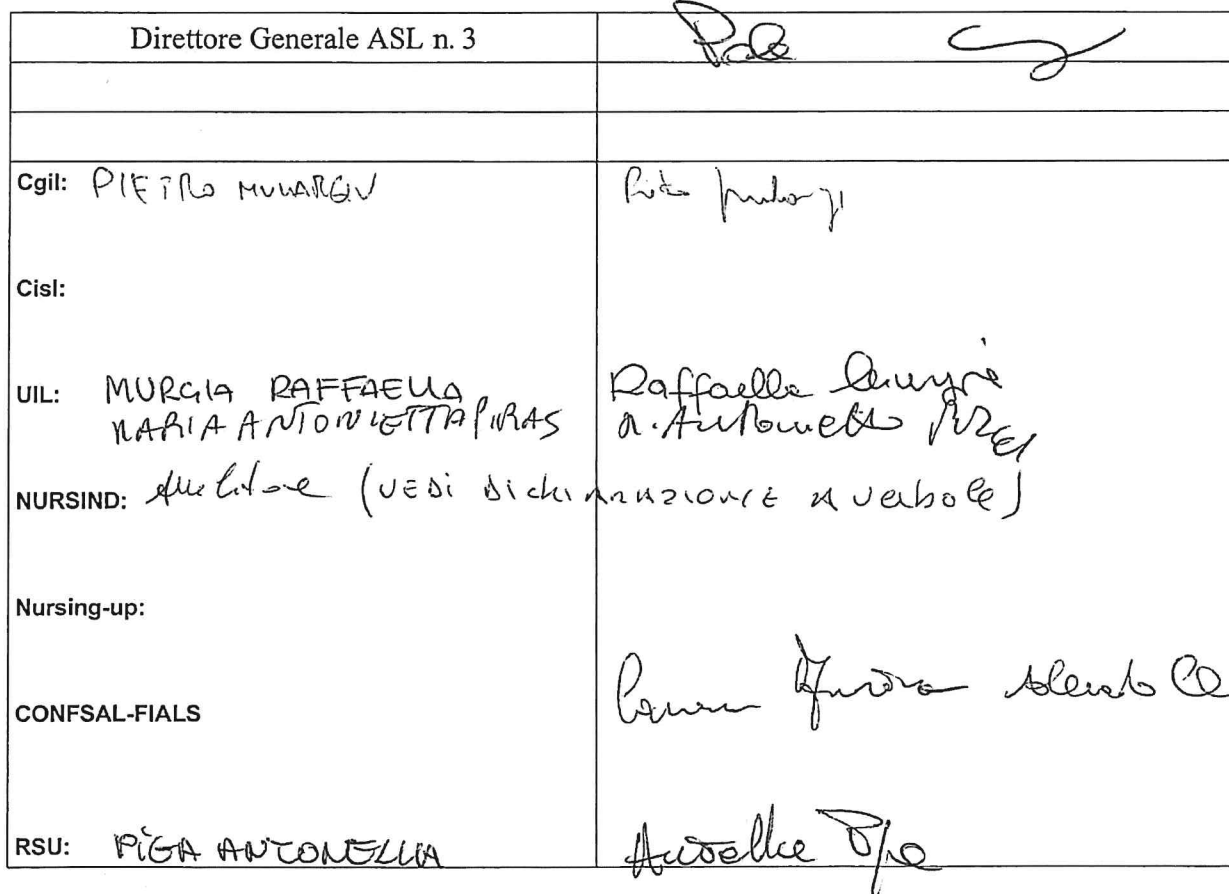 Direttore Generale ASL n. 3
Cgil: PIETRO MULARGIU
Cisl:
UIL: MURGIA RAFFAELLA Raffaella Murgia
MARIA ANTONIETTA PIRAS M. Antonietta Piras
NURSIND: (VEDI DICHIARAZIONE A verbale)
Nursing-up:
CONFSAL-FIALS
RSU: PIGA ANTONELLA Antonella Piga